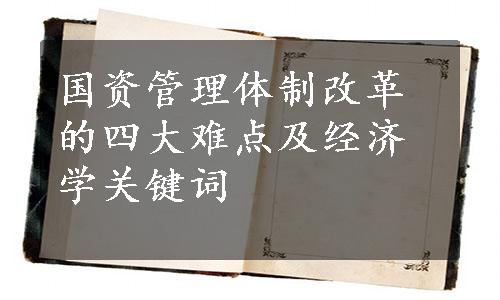 国资管理体制改革
的四大难点及经济
学关键词